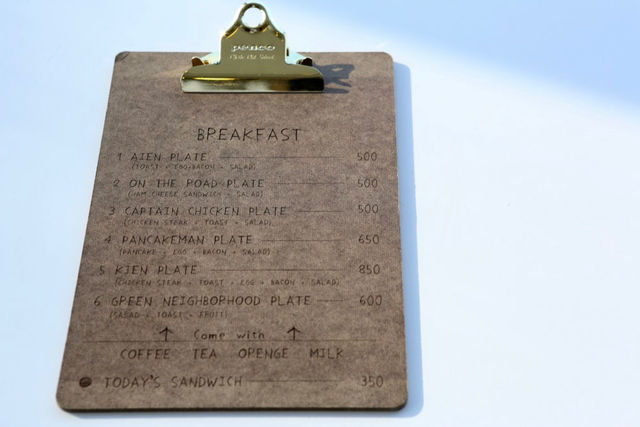 BREAKFAST
1 AIEN PLATE 500
(TOAST + EGG+BACON + SALAD)
2 ON THE ROAD PLATE 500
(HAM CHEESE SANDWICH + SALAD)
3 CAPTAIN CHICKEN PLATE 500
(CHICKEN STEAK + TOAST + SALAD)
4 PANCAKEMAN PLATE 650
(PANCAKE + EGG + BACON + SALAD)
5 KIEN PLATE 850
(CHICKEN STEAK + TOAST + EGG + BACON + SALAD)
6 GREEN NEIGHBORHOOD PLATE 600
(SALAD + TOAST + FRUIT)
↑ Come with ↑
COFFEE TEA ORENGE MILK
● TODAY'S SANDWICH 350